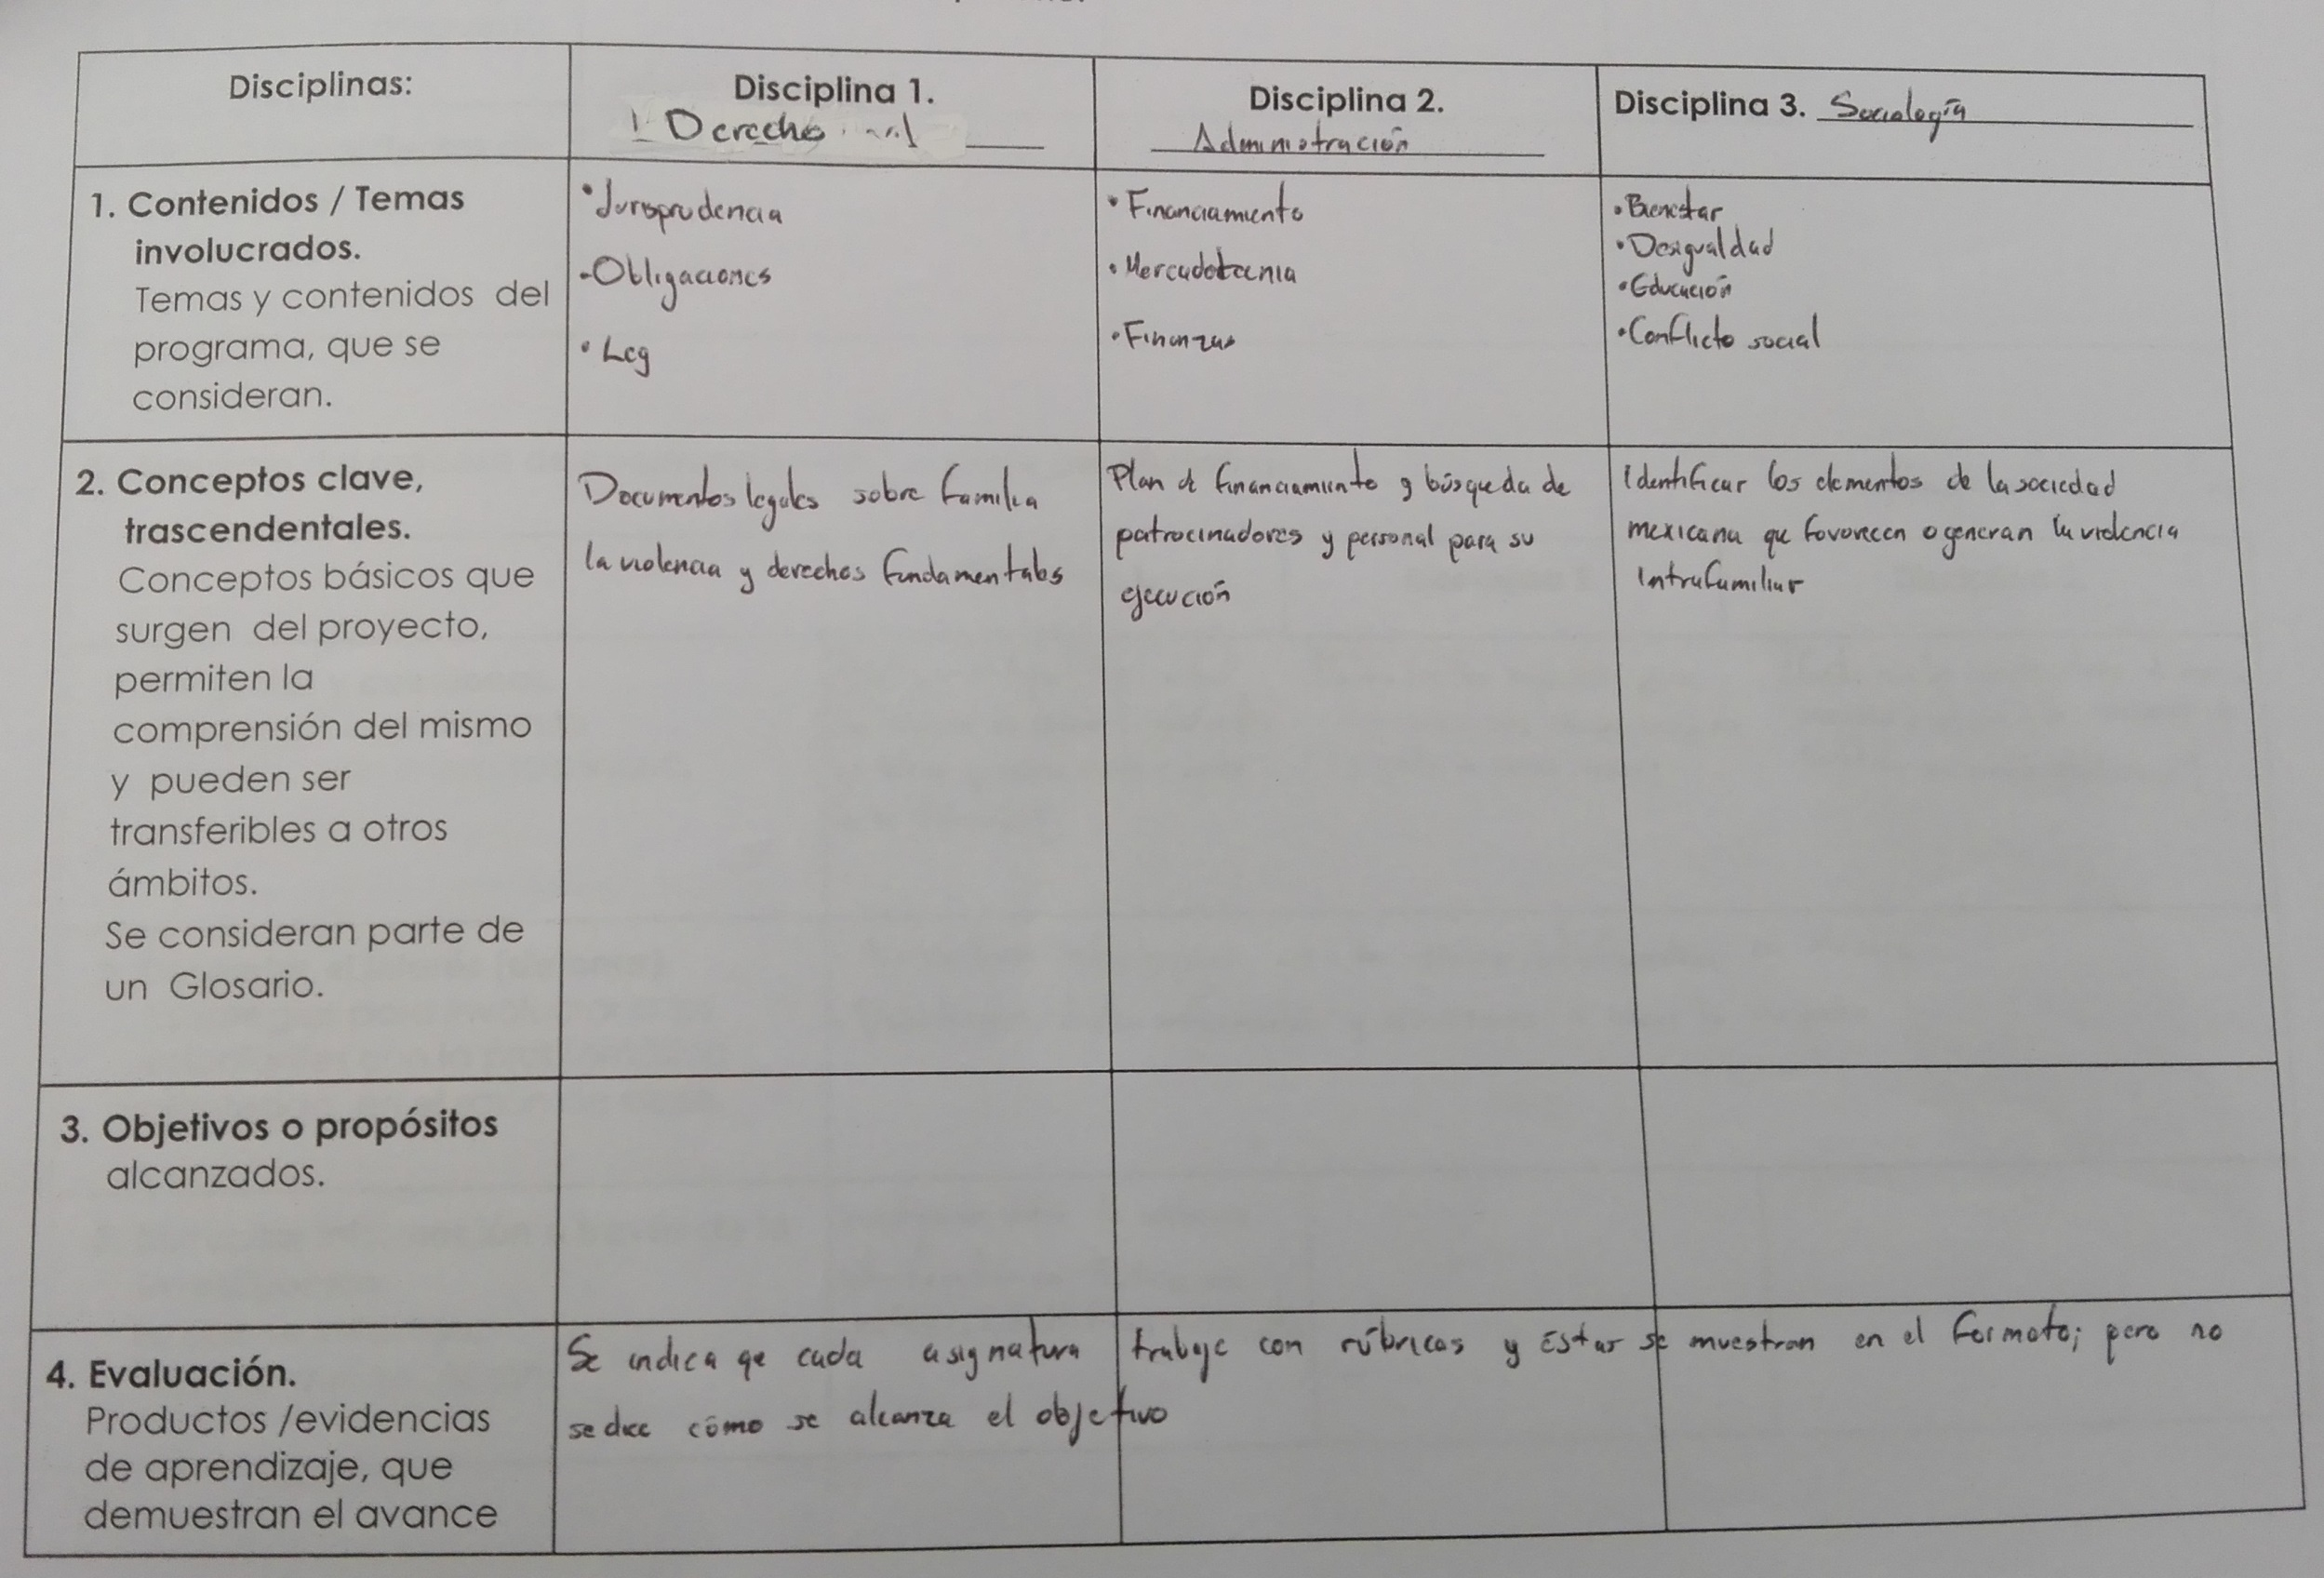 Disciplinas:
Disciplina 1.
Derecho
Disciplina 2.
Administración
Disciplina 3. Sociología
1. Contenidos / Temas
involucrados.
Temas y contenidos del
programa, que se
consideran.
•Jurisprudencia
-Obligaciones
•Ley
•Financiamiento
•Mercadotecnia
•Finanzas
•Bienestar
•Desigualdad
•Educación
•Conflicto social
2. Conceptos clave,
trascendentales.
Conceptos básicos que
surgen del proyecto,
permiten la
comprensión del mismo
y pueden ser
transferibles a otros
ámbitos.
Se consideran parte de
un Glosario.
Documentos legales sobre familia
la violencia y derechos fundamentales
Plan de financiamiento y búsqueda de
patrocinadores y personal para su
ejecución
Identificar los elementos de la sociedad
mexicana que favorecen o generan la violencia
intrafamiliar
3. Objetivos o propósitos
alcanzados.
4. Evaluación.
Productos /evidencias
de aprendizaje, que
demuestran el avance
Se indica qe cada asignatura trabaje con rúbricas y éstas se muestran en el formato; pero no
se dice cómo se alcanza el objetivo